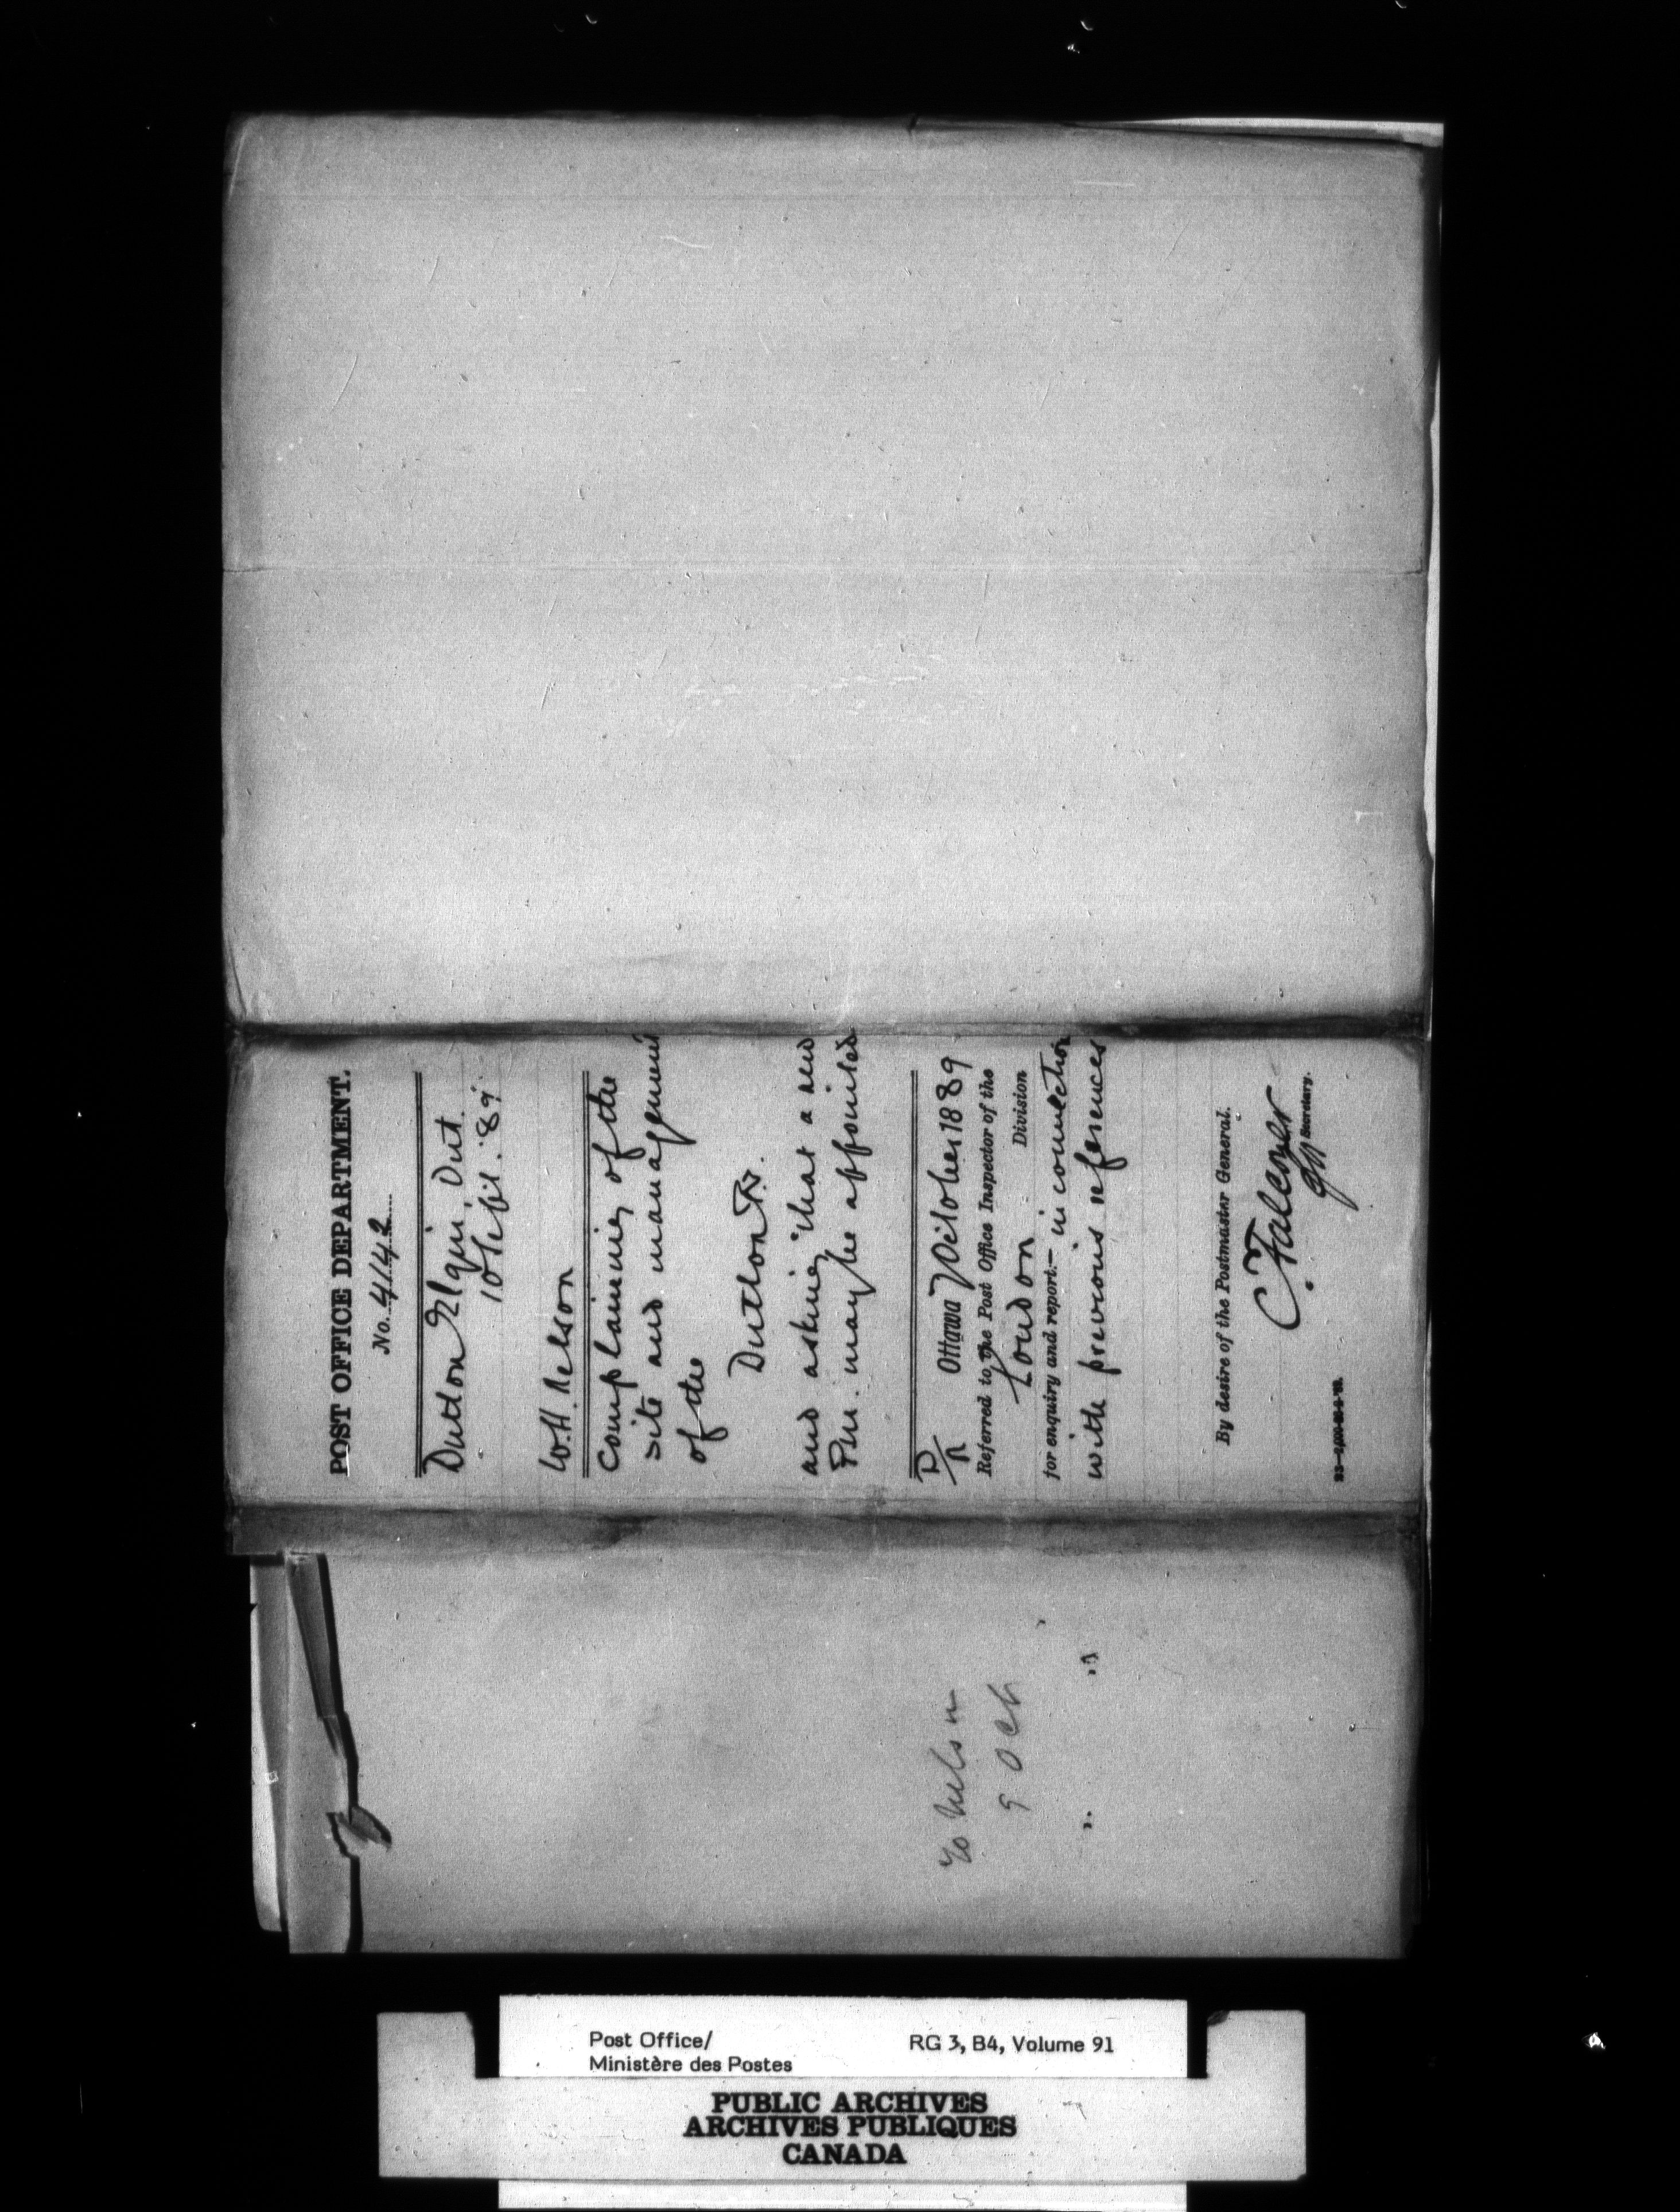 POST OFFICE DEPARTMENT.
No. 4142
Dutton Elgin Ont.
10 '89.
W.H. Nelson
Complaining of the
site and management
of the
Dutton P.O.
and asking that a new
P.M. may be appointed
Ottawa 7 October 1889
Referred to the Post Office Inspector of the
London Division
for enquiry and report.— in connection
with previous references
By desire of the Postmaster General.
Secretary.
To Nelson
9 Oct
Post Office/
Ministère des Postes
RG 3, B4, Volume 91
PUBLIC ARCHIVES
ARCHIVES PUBLIQUES
CANADA